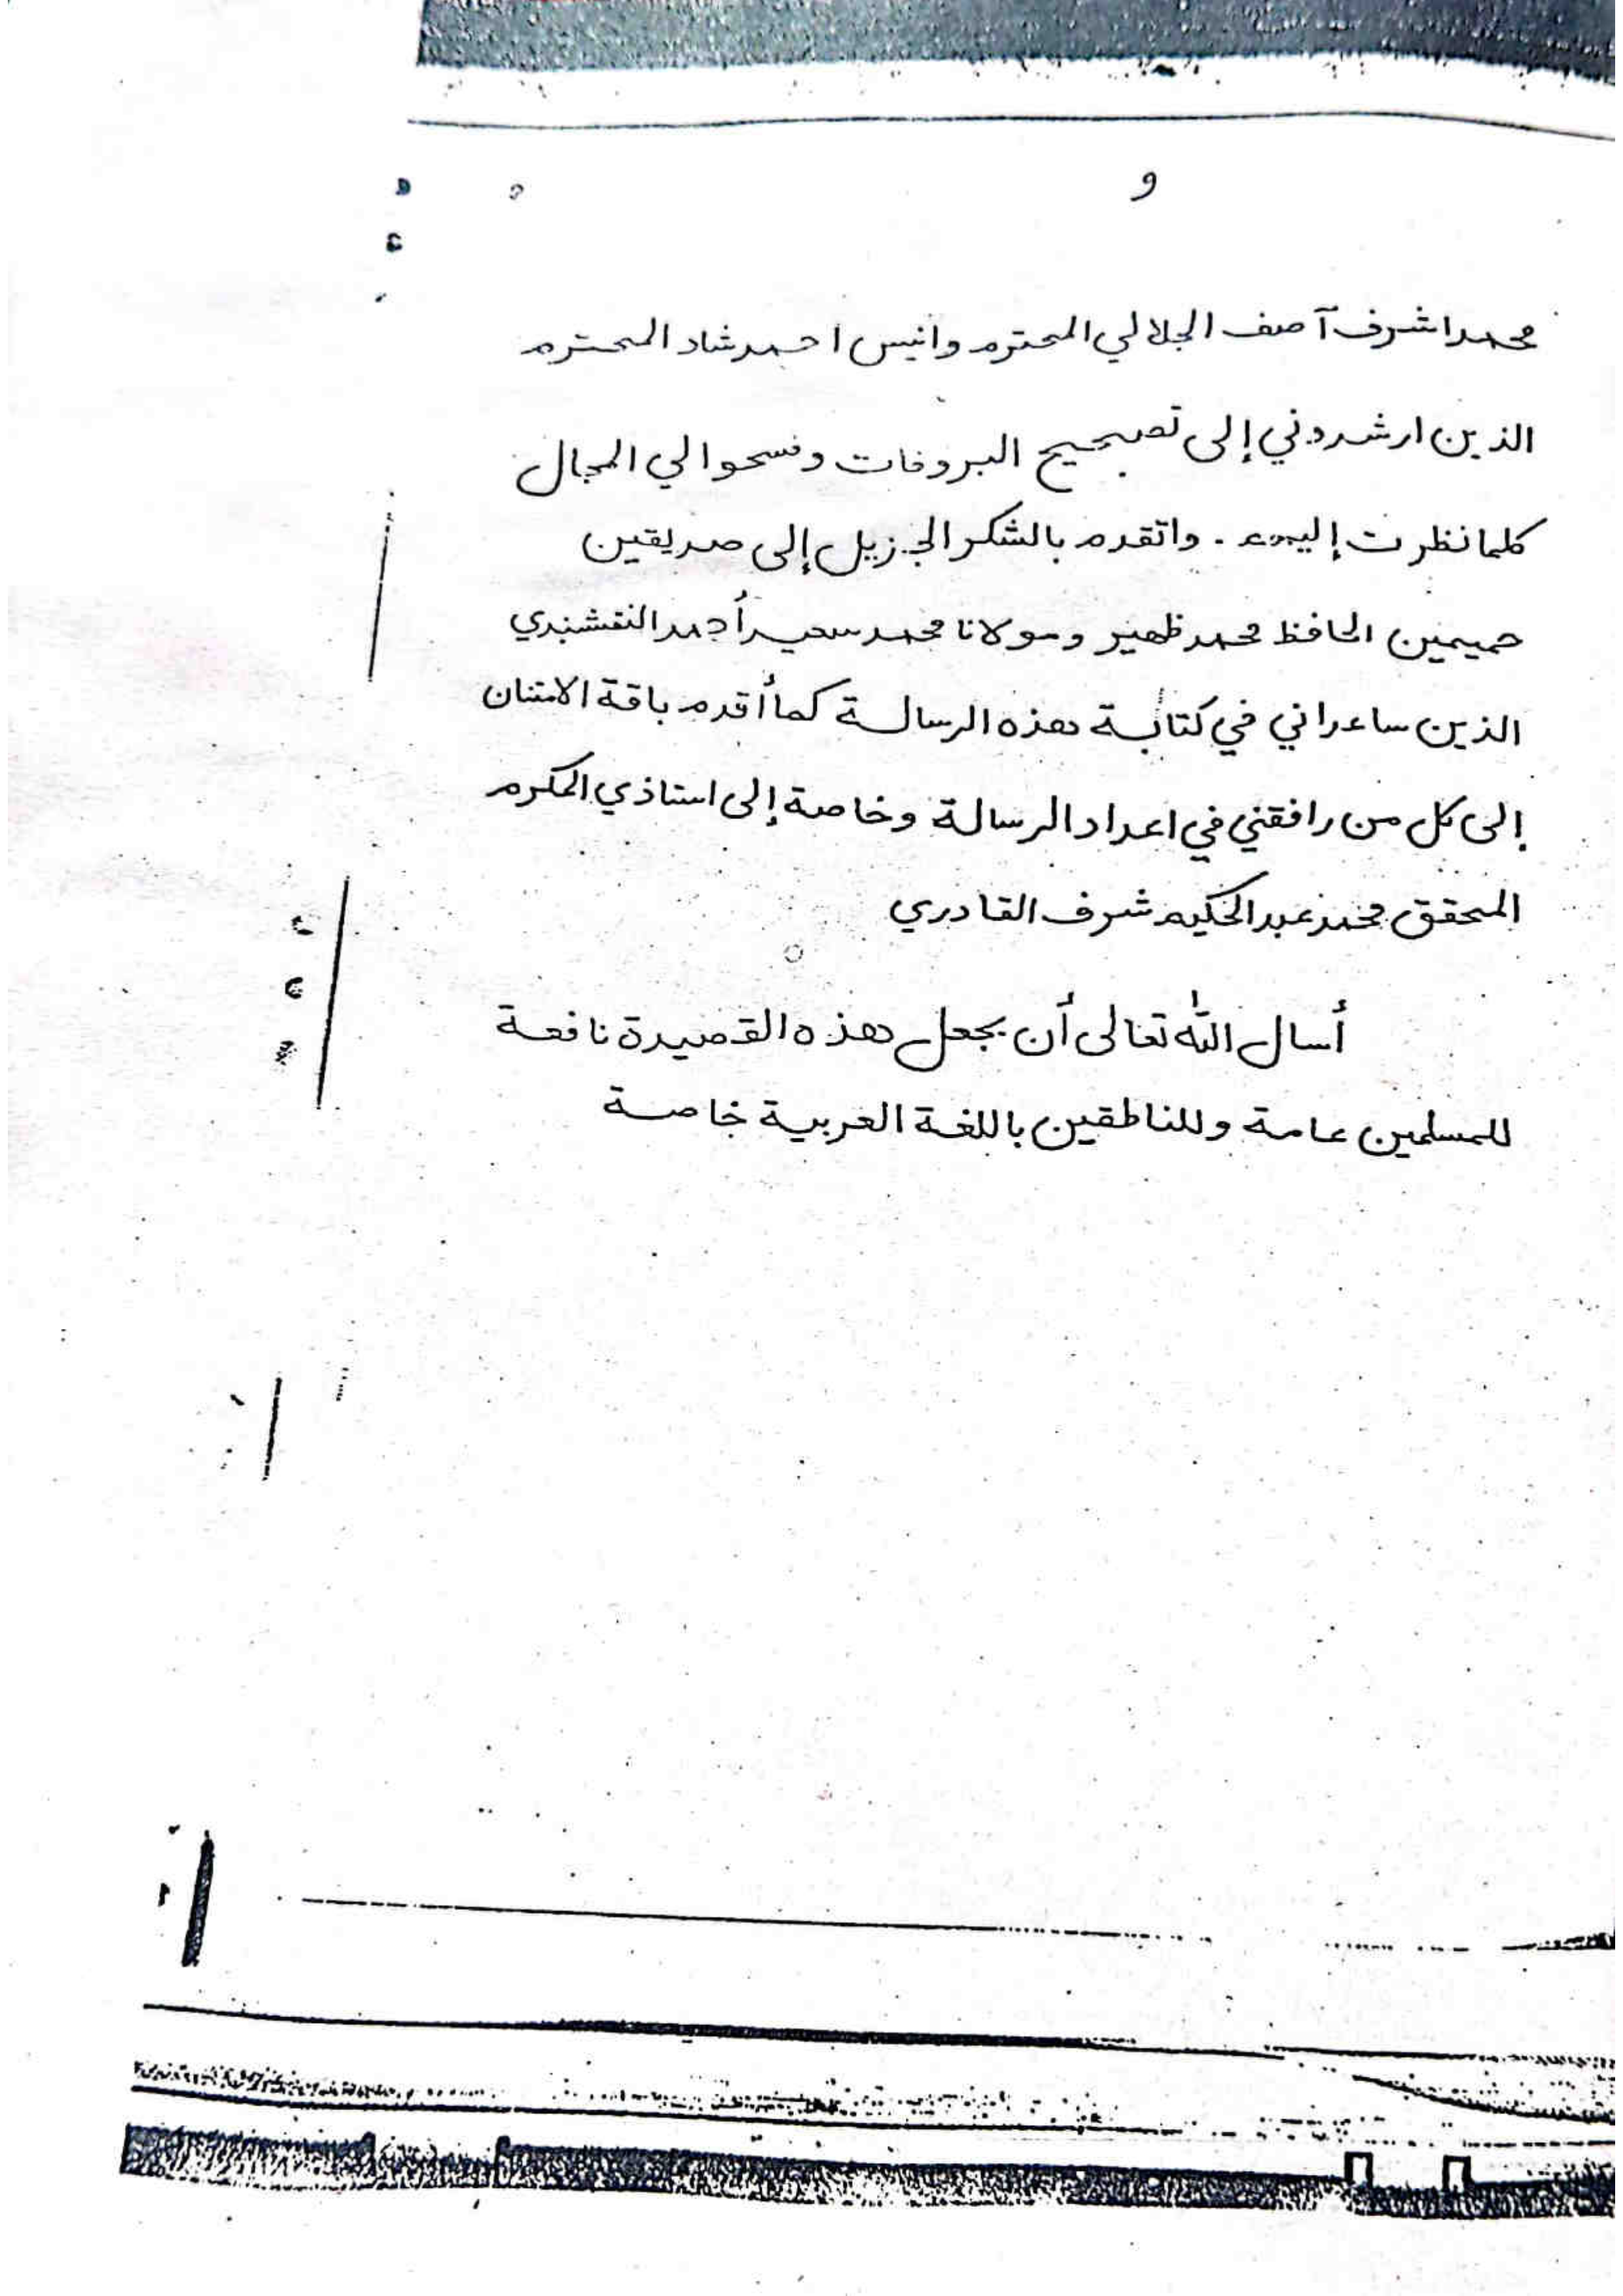 و
محمد اشرف آصف الجلالي المحترم وانيس احمد شاد المحترم
الذين ارشدوني إلى تصحيح البروفات وفسحوا لي المجال
كلما نظرت إليهم . واتقدم بالشكر الجزيل إلى صديقين
حميمين الحافظ محمد ظهير ومولانا محمد سعيد أحمد النقشبندي
الذين ساعداني في كتابة هذه الرسالة كما أقدم باقة الامتنان
إلى كل من رافقني في اعداد الرسالة وخاصة إلى استاذي المكرم
المحقق محمد عبد الحكيم شرف القادري
أسال الله تعالى أن يجعل هذه القصيدة نافعة
للمسلمين عامة وللناطقين باللغة العربية خاصة